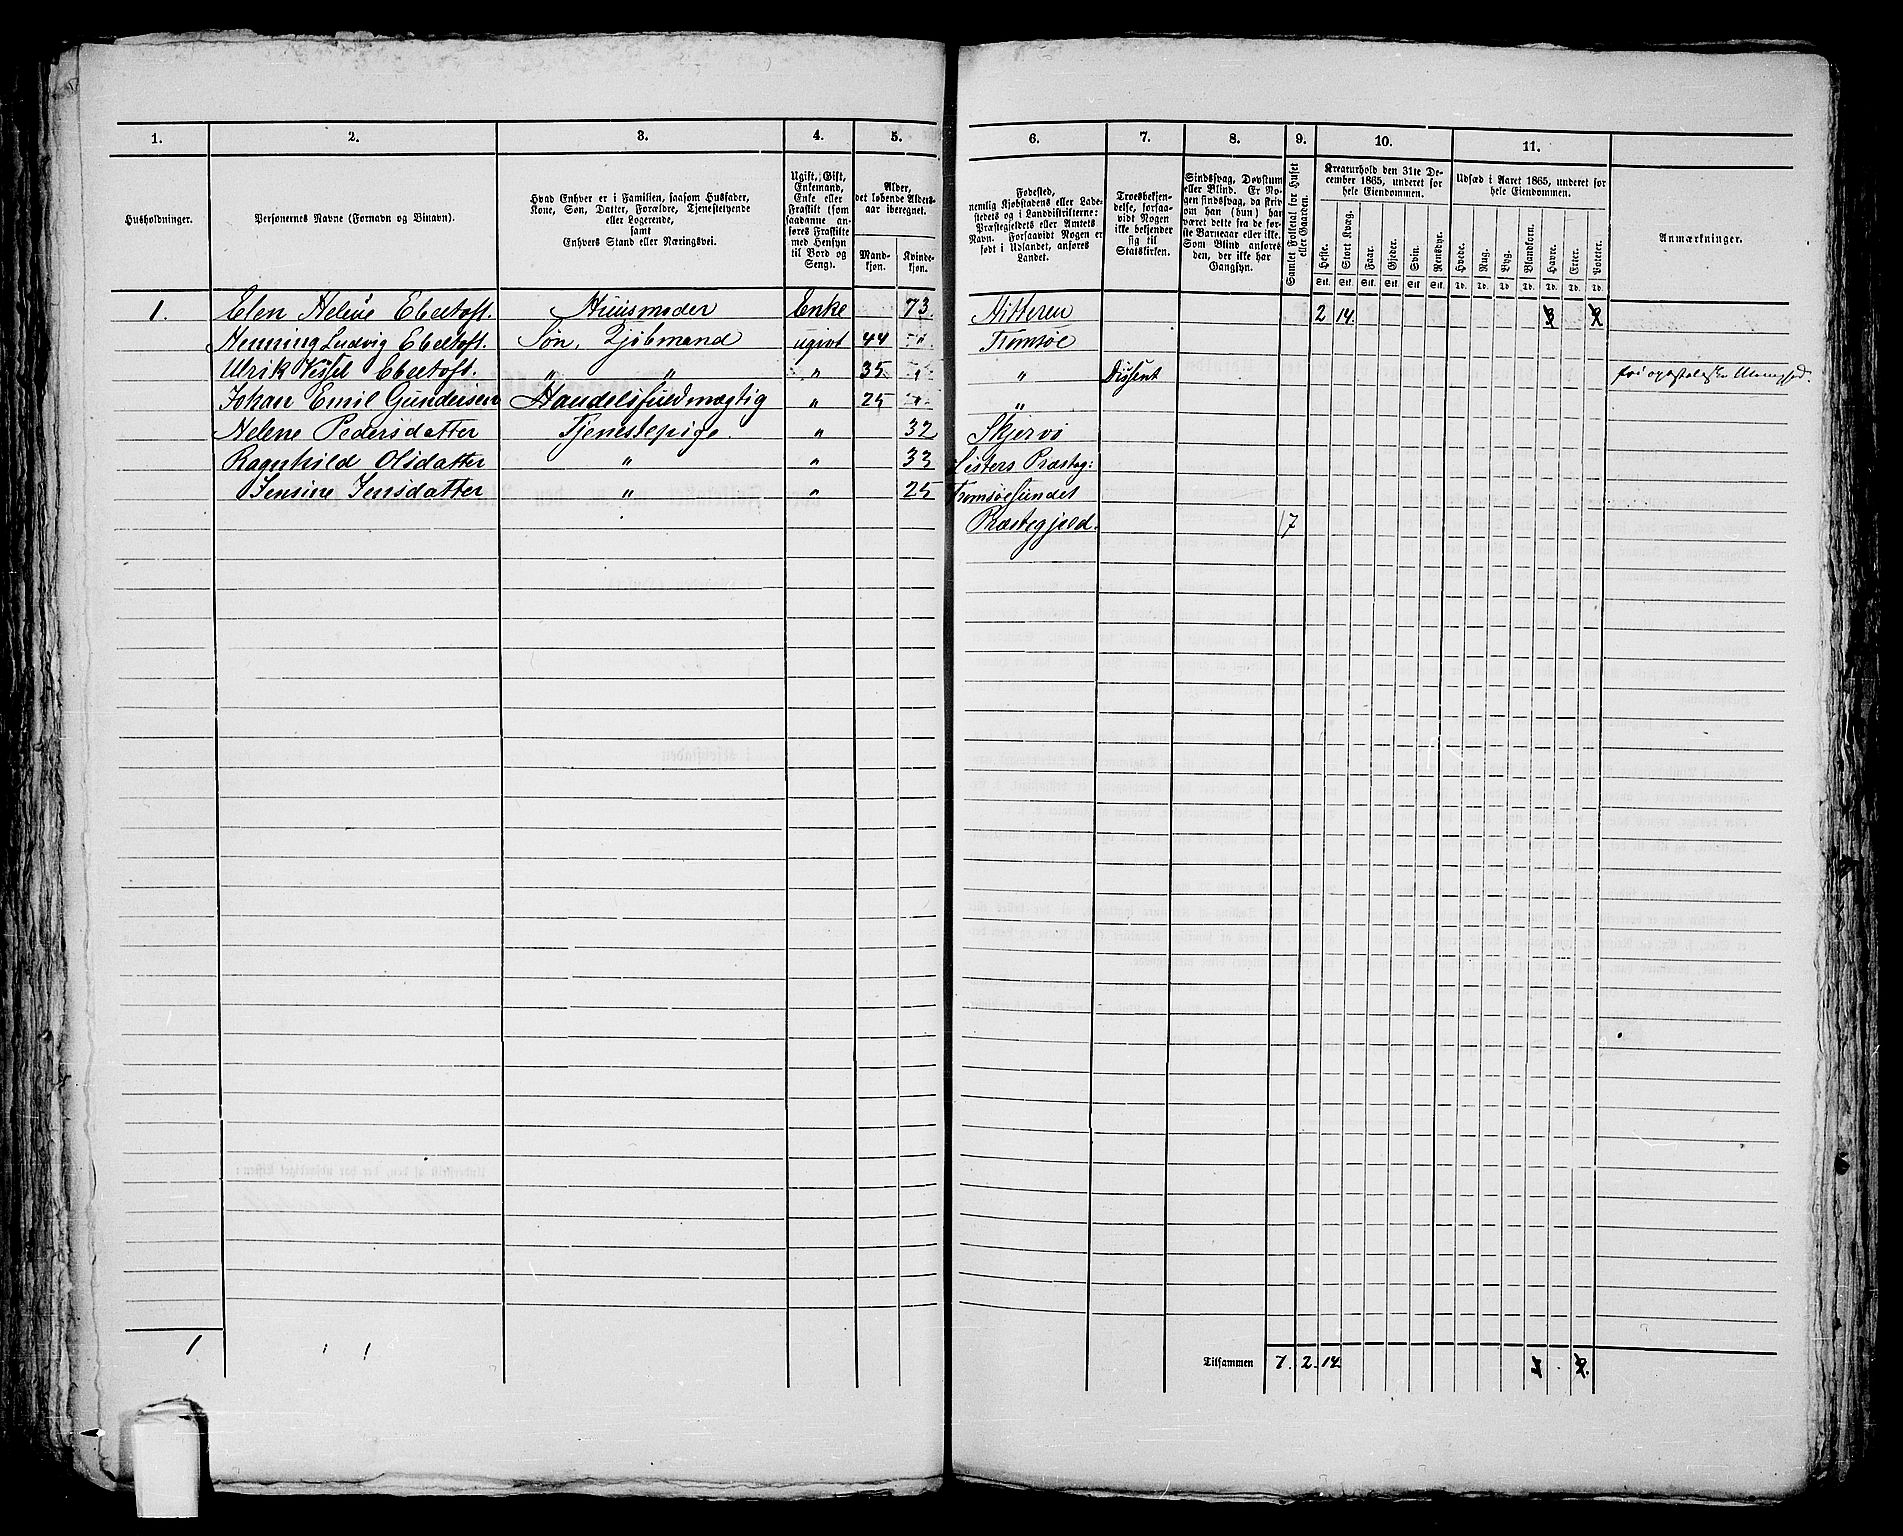 1. 2. 3. 4. 5. 6. 7. 8. 9. 10. 11.
Husholdninger.
Personernes Navne (Fornavn og Binavn).
Hvad Enhver er i Familien, saasom Husfader,
Kone, Søn, Datter, Forældre, Tjenestetyende
eller Logerende,
samt
Enhvers Stand eller Næringsvei.
Ugift, Gift,
Enkemand,
Enke eller
Fraskilt (som
saadanne anføres Fraskilte
med Hensyn
til Bord og
Seng).
Alder,
det løbende Aldersaar iberegnet.
Mandkjøn.
Kvindekjøn.
Fødested,
nemlig Kjøbstadens eller Ladestedets og i Landdistrikterne:
Præstegjeldets eller Amtets
Navn. Forsaavidt Nogen er
født i Udlandet, anføres
Landet.
Troesbekjendelse, forsaavidt Nogen
ikke bekjender
sig til
Statskirken.
Sindssvag, Døvstum
eller Blind. Er Nogen sindssvag, da skrives om han (hun) har
været dette fra de første Barneaar eller ikke.
Som Blind anføres
den, der ikke har
Gangsyn.
Samlet Folketal for Huset
eller Gaarden.
Kreaturhold den 31te December 1865, underet for
hele Eiendommen.
Heste. Stort Kvæg. Faar. Gjeder. Svin. Rensdyr.
Stk. Stk. Stk. Stk. Stk. Stk.
Udsæd i Aaret 1865, underet for
hele Eiendommen.
Hvede. Rug. Byg. Blandkorn. Havre. Erter. Poteter.
Td. Td. Td. Td. Td. Td. Td.
Anmærkninger.
1. Elen Helene Ebeltoft. Huusmoder Enke 73. Hitteren 2 14.
Henning Ludvig Ebeltoft. Søn, Kjøbmand ugivt 44 " Tromsøe
Ulrik Vessel Ebeltoft. " " " 35 " " Dissent fri apostoliske
Johan Emil Gundersen Handelsfuldmægtig " 25 " "
Helene Pedersdatter Tjenestepige. " 32 Skjervø
Ragnhild Olsdatter " " 33 Listers Præsteg:
Jensine Jensdatter " " 25 Tromsøesundet
Præstegjeld. 7
1 Tilsammen 7. 2. 14